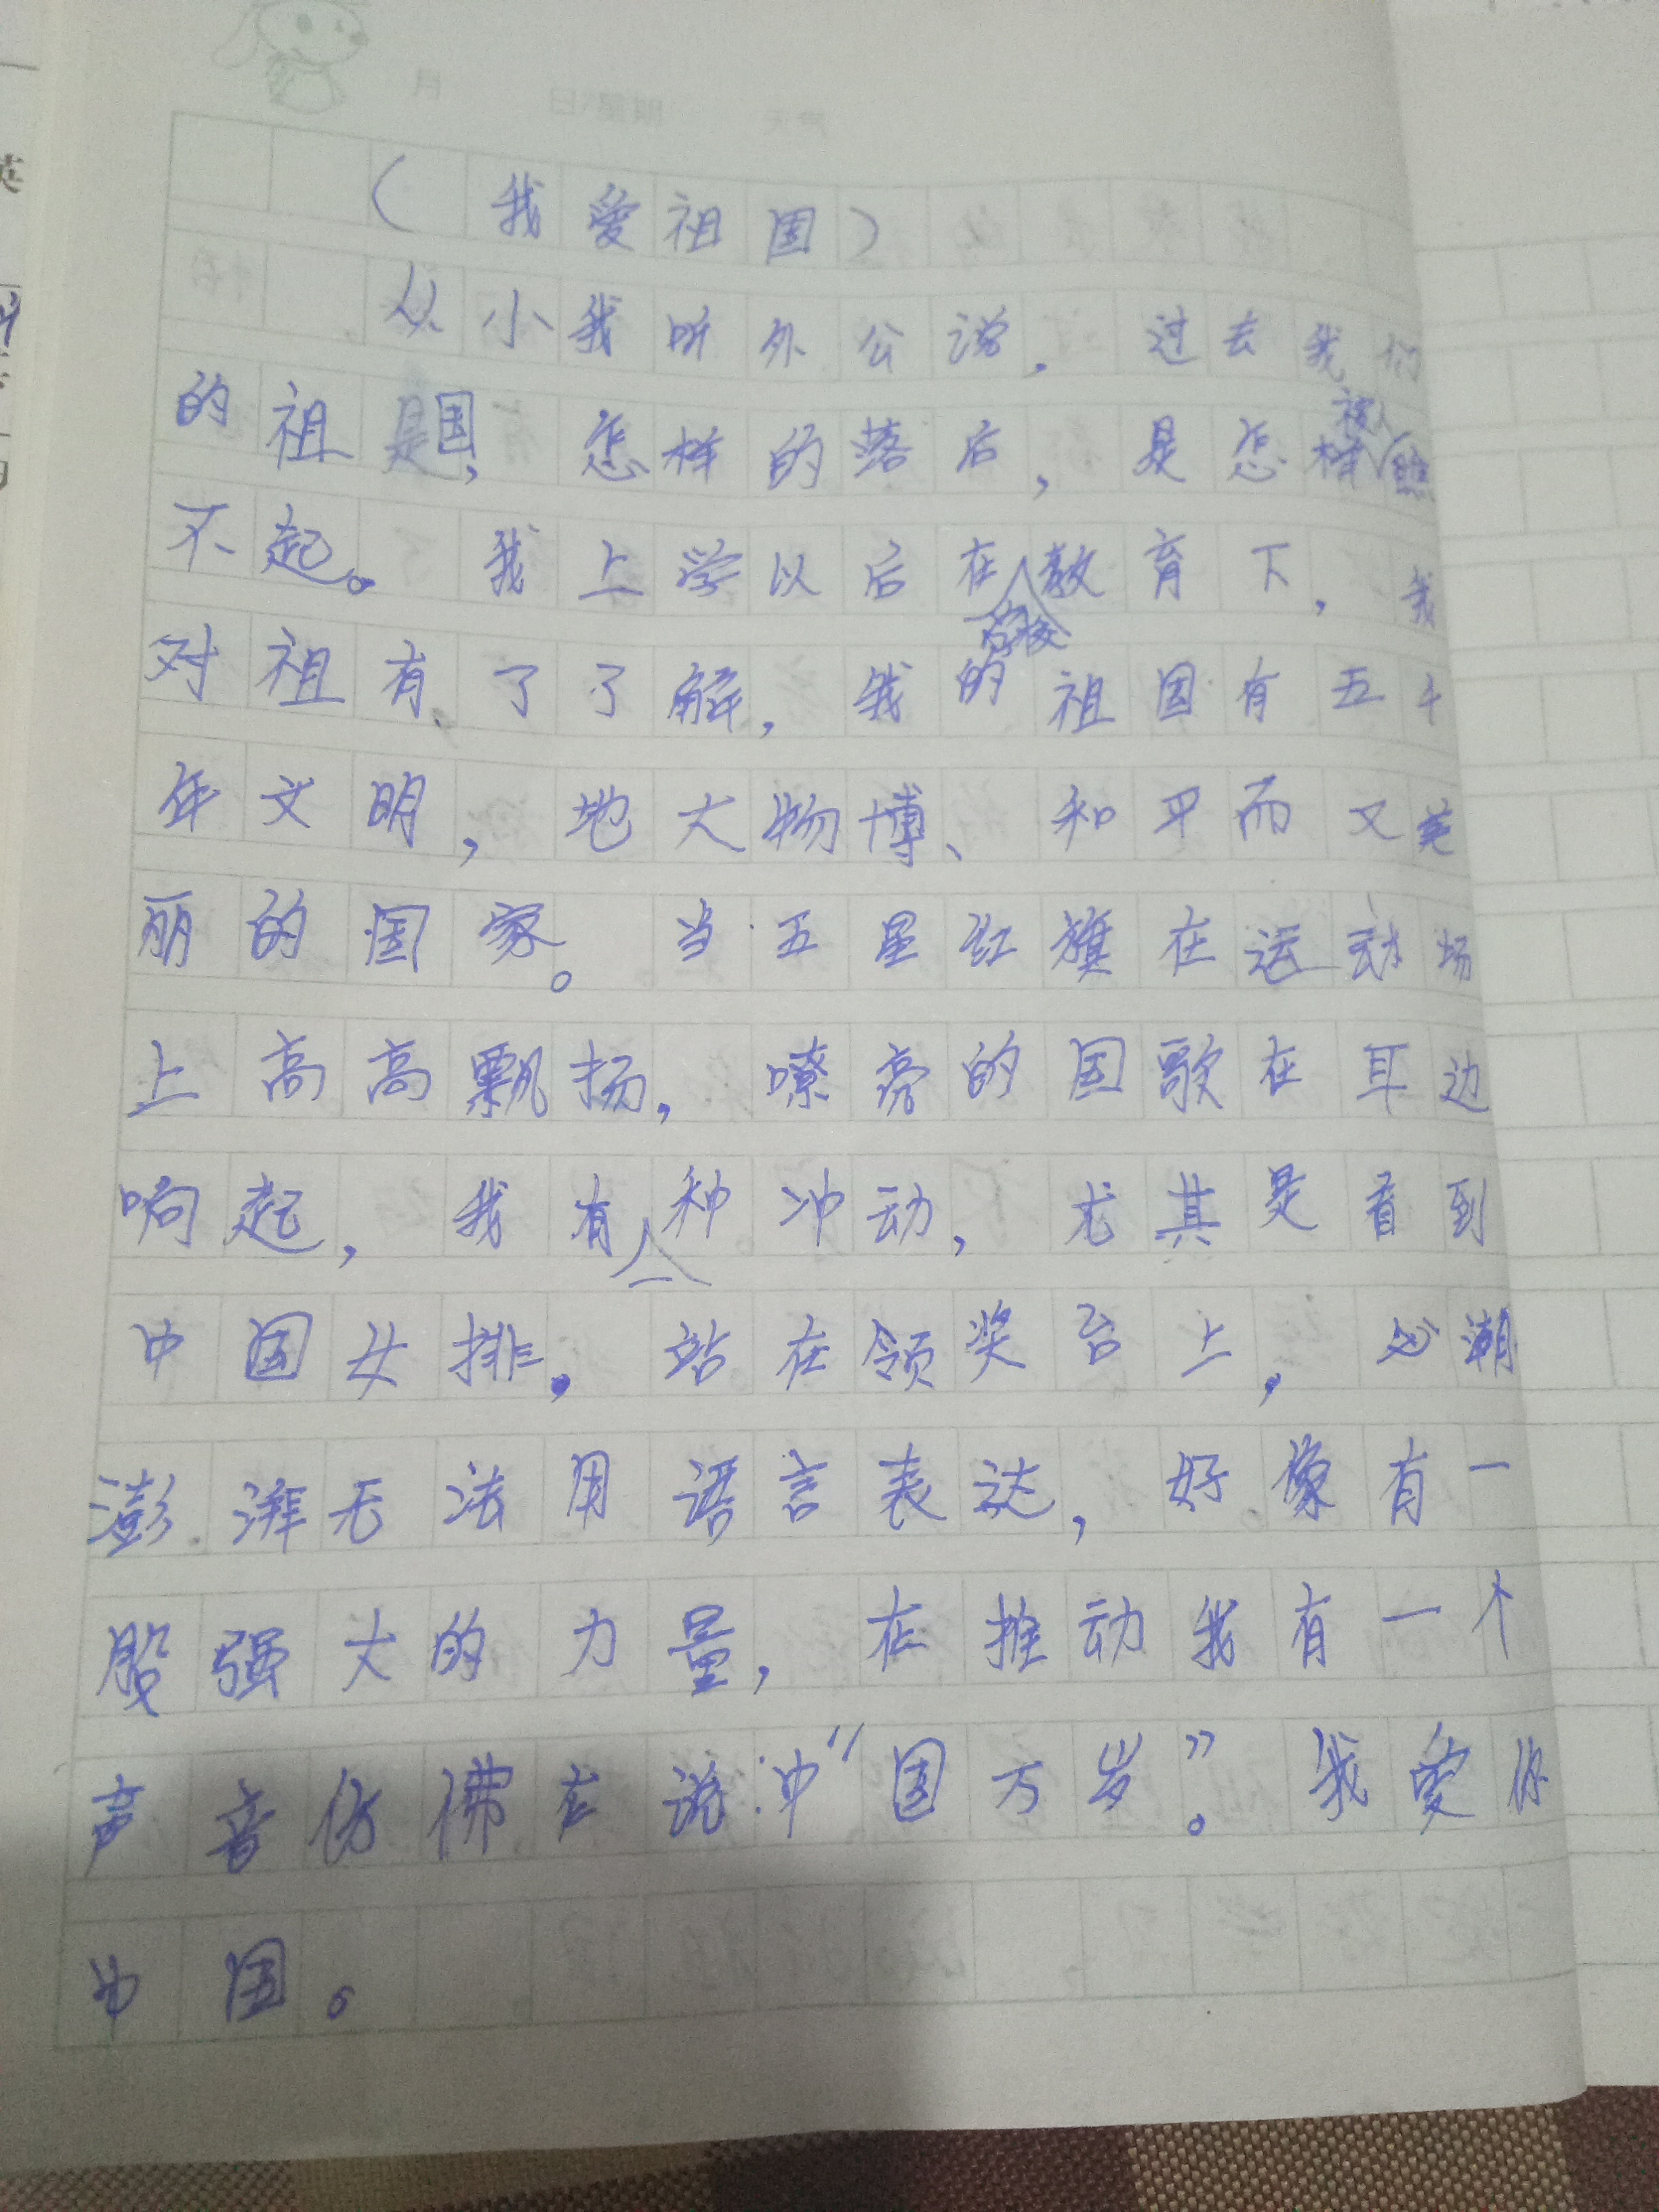 月 日 星期 天气
英
（我爱祖国）
从小我听外公说，过去我们
的祖国，怎样的落后，是怎样被人瞧
不起。我上学以后在学校教育下，我
对祖有了了解，我的祖国有五千
年文明，地大物博、和平而又美
丽的国家。当五星红旗在运动场
上高高飘扬，嘹亮的国歌在耳边
响起，我有一种冲动，尤其是看到
中国女排，站在领奖台上，心潮
澎湃无法用语言表达，好像有一
股强大的力量，在推动我有一个
声音仿佛在说：冲“国万岁”。我爱你
中国。